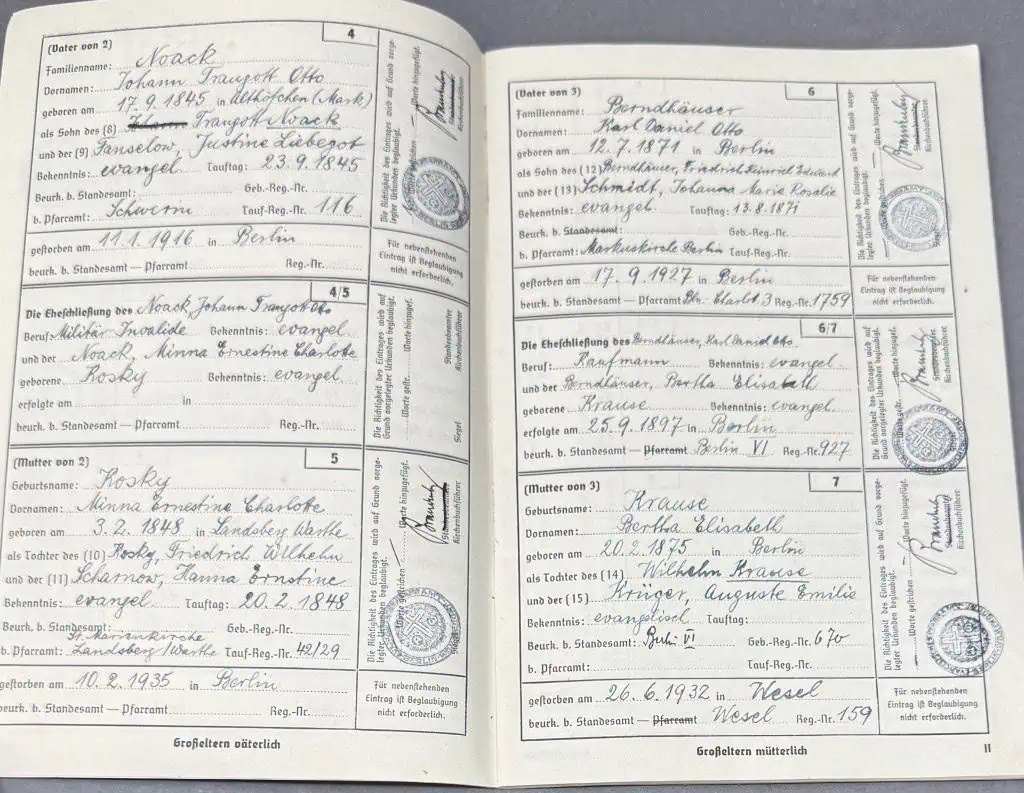 (Vater von 2) 4
Familienname: Noack
Vornamen: Johann Traugott Otto
geboren am 17.9.1845 in Althöfchen (Mark)
als Sohn des (8) Johann Traugott Noack
und der (9) Fanselow, Justine Liebegot
Bekenntnis: evangel. Tauftag: 23.9.1845
Beurk. b. Standesamt: Geb.-Reg.-Nr.
b. Pfarramt: Schwerin Tauf-Reg.-Nr. 116
gestorben am 11.1.1916 in Berlin
beurk. b. Standesamt — Pfarramt Reg.-Nr.
Die Richtigkeit des Eintrages wird auf Grund vorge-
legter Urkunden beglaubigt.
Worte gestrichen — Worte hinzugefügt.
Standesbeamter
Kirchenbuchführer
Für nebenstehenden
Eintrag ist Beglaubigung
nicht erforderlich.
4/5
Die Eheschließung des Noack, Johann Traugott Otto
Beruf: Militär Invalide Bekenntnis: evangel
und der Noack, Minna Ernestine Charlotte
geborene Rosky Bekenntnis: evangel.
erfolgte am in
beurk. b. Standesamt — Pfarramt Reg.-Nr.
Die Richtigkeit des Eintrages wird auf
Grund vorgelegter Urkunden beglaubigt.
Worte gestr. Worte hinzugef.
Standesbeamter
Kirchenbuchführer
Siegel
(Mutter von 2) 5
Geburtsname: Rosky
Vornamen: Minna Ernestine Charlotte
geboren am 3.2.1848 in Landsberg Warthe
als Tochter des (10) Rosky, Friedrich Wilhelm
und der (11) Scharnow, Hanna Ernstine
Bekenntnis: evangel. Tauftag: 20.2.1848
Beurk. b. Standesamt: Geb.-Reg.-Nr.
St. Marienkirche
b. Pfarramt: Landsberg/Warthe Tauf-Reg.-Nr. 42/29
gestorben am 10.2.1935 in Berlin
beurk. b. Standesamt — Pfarramt Reg.-Nr.
Die Richtigkeit des Eintrages wird auf Grund vorge-
legter Urkunden beglaubigt.
Worte gestrichen — Worte hinzugefügt.
Standesbeamter
Kirchenbuchführer
Für nebenstehenden
Eintrag ist Beglaubigung
nicht erforderlich.
Großeltern väterlich
(Vater von 3) 6
Familienname: Berndhäuser
Vornamen: Karl Daniel Otto
geboren am 12.7.1871 in Berlin
als Sohn des (12) Berndhäuser, Friedrich Heinrich Eduard
und der (13) Schmidt, Johanna Marie Rosalie
Bekenntnis: evangel. Tauftag: 13.8.1871
Beurk. b. Standesamt: Geb.-Reg.-Nr.
b. Pfarramt: Markuskirche Berlin Tauf-Reg.-Nr.
gestorben am 17.9.1927 in Berlin
beurk. b. Standesamt — Pfarramt Bln. Charltb. 3 Reg.-Nr. 1759
Die Richtigkeit des Eintrages wird auf Grund vorge-
legter Urkunden beglaubigt.
Worte gestrichen — Worte hinzugefügt.
Standesbeamter
Kirchenbuchführer
Siegel
Für nebenstehenden
Eintrag ist Beglaubigung
nicht erforderlich.
6/7
Die Eheschließung des Berndhäuser, Karl Daniel Otto.
Beruf: Kaufmann Bekenntnis: evangel.
und der Berndhäuser, Bertha Elisabeth
geborene Krause Bekenntnis: evangel.
erfolgte am 25.9.1897 in Berlin
beurk. b. Standesamt — Pfarramt Berlin VI Reg.-Nr. 927
Die Richtigkeit des Eintrages wird auf
Grund vorgelegter Urkunden beglaubigt.
Worte gestr. Worte hinzugef.
Standesbeamter
Kirchenbuchführer
(Mutter von 3) 7
Geburtsname: Krause
Vornamen: Bertha Elisabeth
geboren am 20.2.1875 in Berlin
als Tochter des (14) Wilhelm Krause
und der (15) Krüger, Auguste Emilie
Bekenntnis: evangelisch Tauftag:
Beurk. b. Standesamt: Berlin VI Geb.-Reg.-Nr. 670
b. Pfarramt: Tauf-Reg.-Nr.
gestorben am 26.6.1932 in Wesel
beurk. b. Standesamt — Pfarramt Wesel Reg.-Nr. 159
Die Richtigkeit des Eintrages wird auf Grund vorge-
legter Urkunden beglaubigt.
Worte gestrichen — Worte hinzugefügt.
Standesbeamter
Kirchenbuchführer
Für nebenstehenden
Eintrag ist Beglaubigung
nicht erforderlich.
Großeltern mütterlich
11